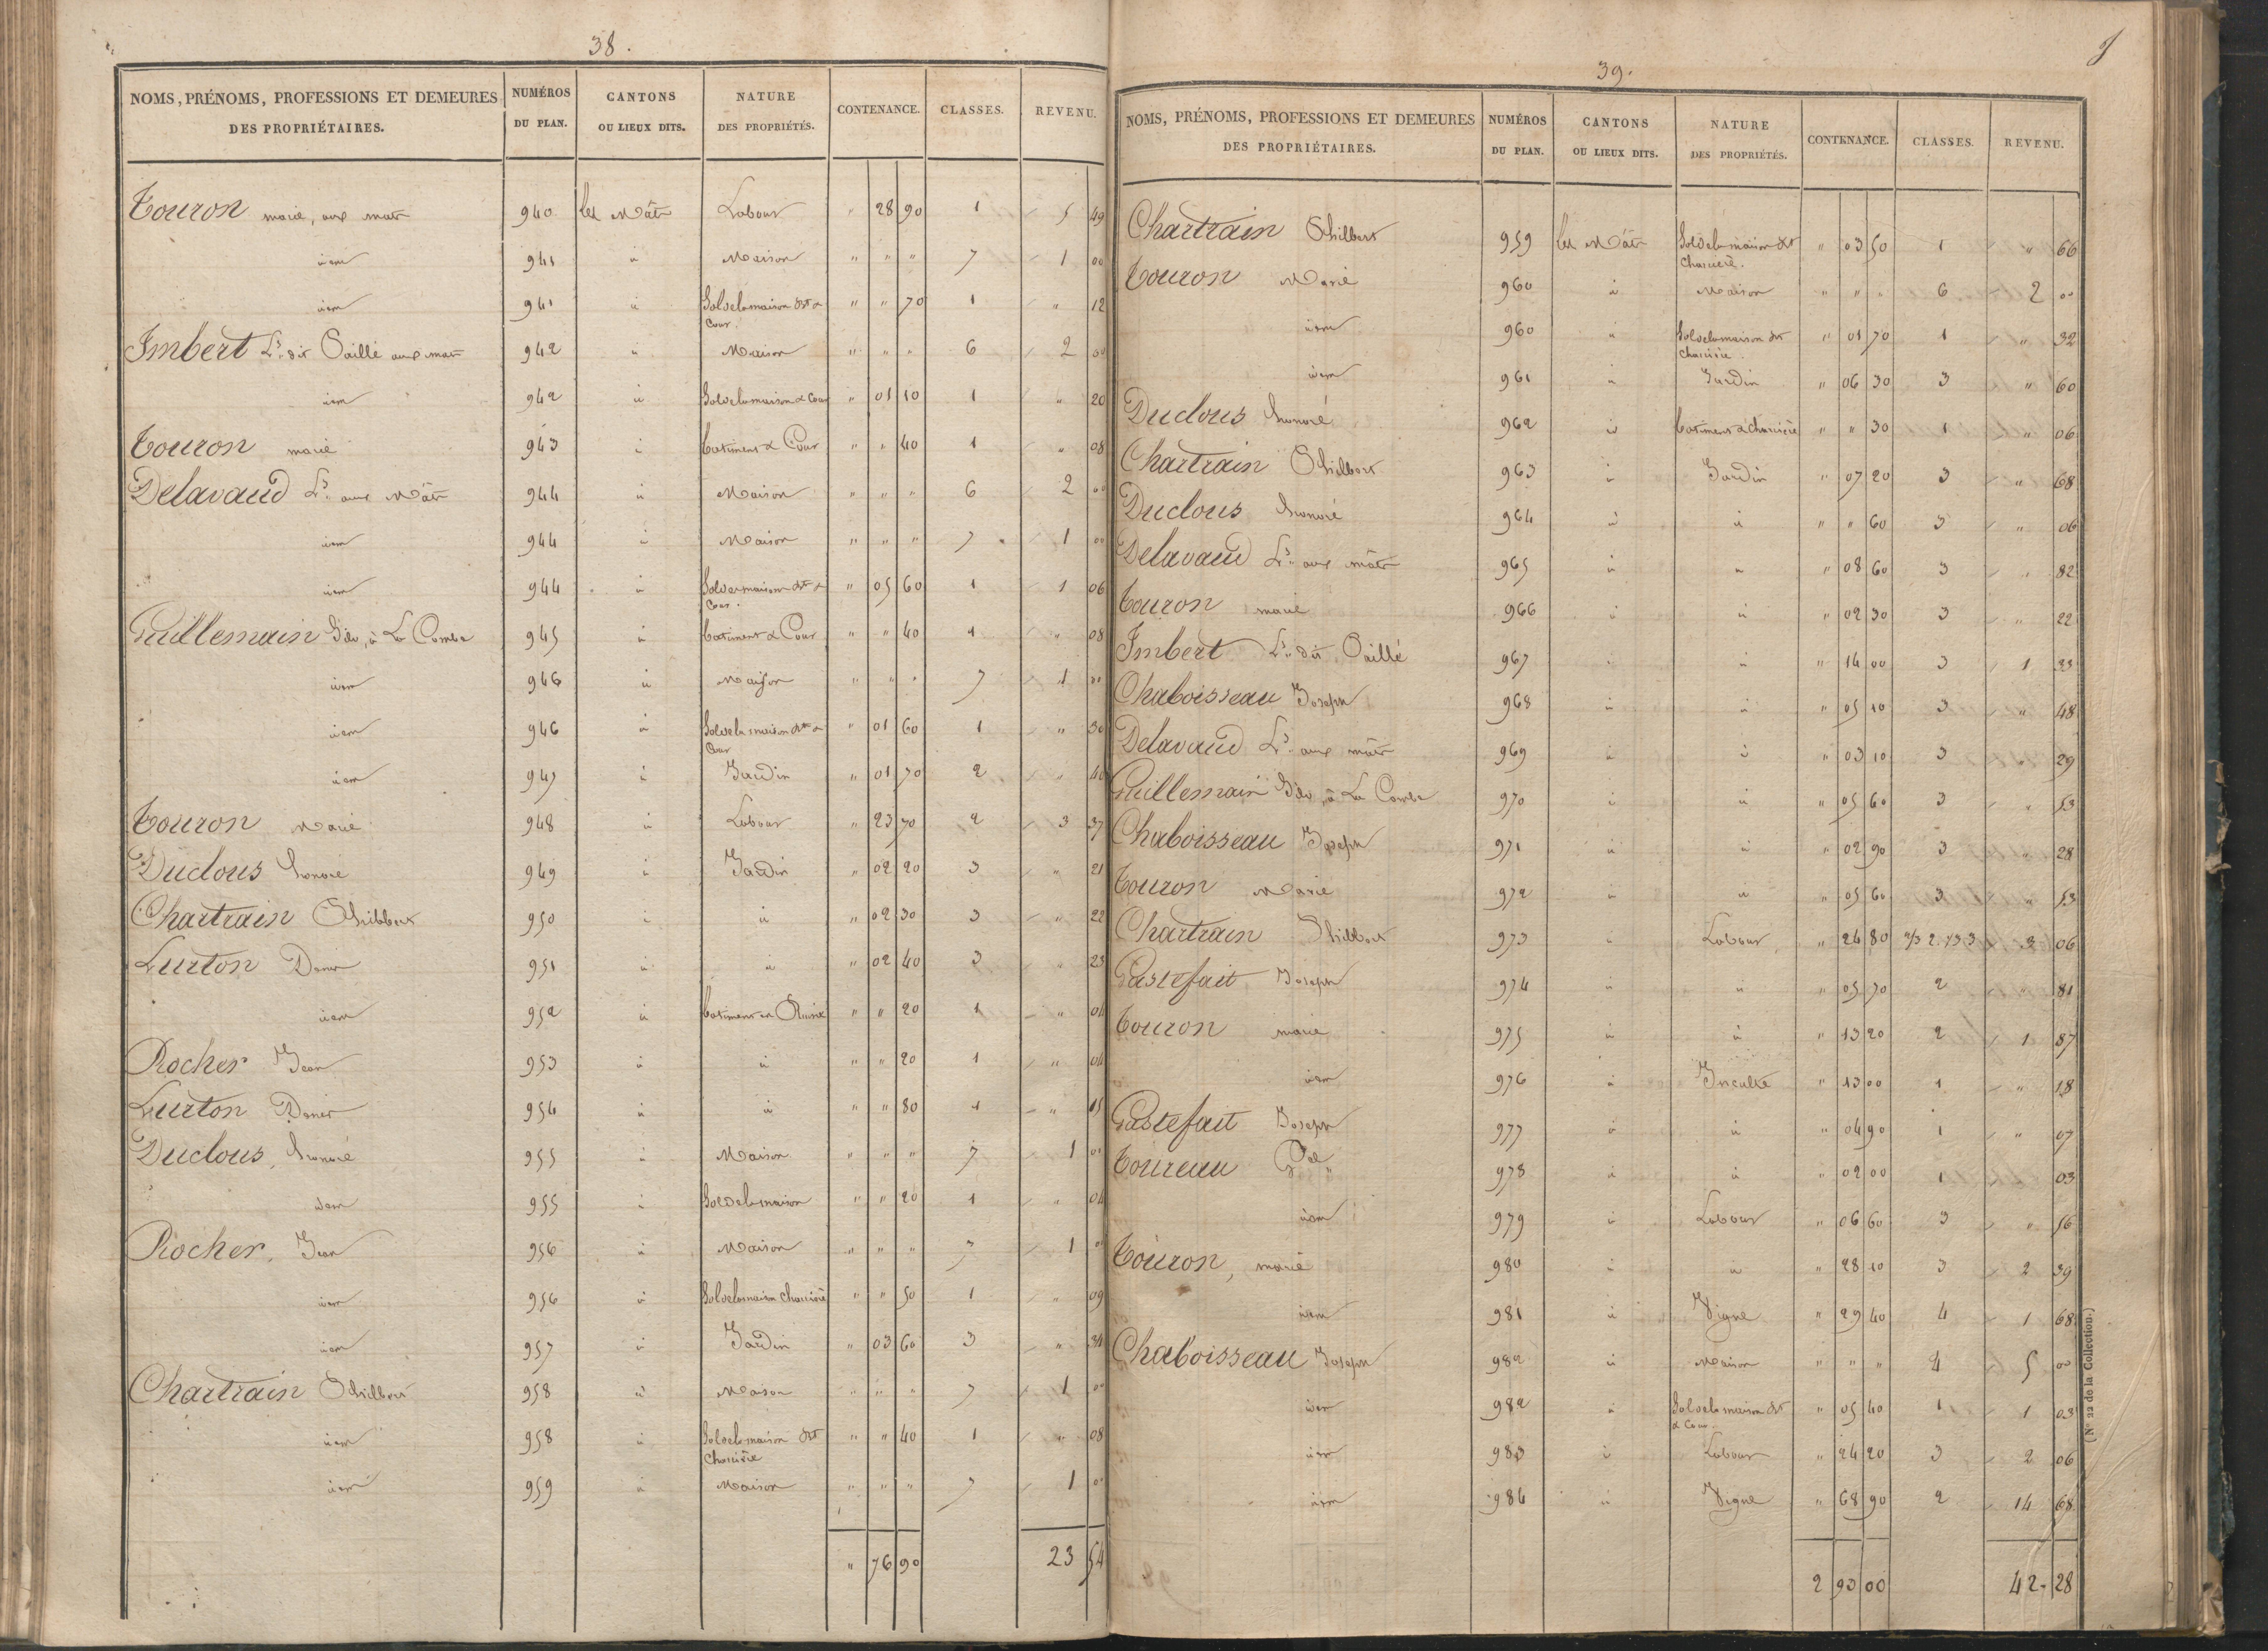 38.
NOMS, PRÉNOMS, PROFESSIONS ET DEMEURES DES PROPRIÉTAIRES. NUMÉROS DU PLAN. CANTONS OU LIEUX DITS. NATURE DES PROPRIÉTÉS. CONTENANCE. CLASSES. REVENU.
Touron marie, aux mats 940 les Mâts Labour " 28 90 1 5 49
idem 941 id Maison " " " 7 1 00
idem 941 id Sol de la maison dte & Cour. " " 70 1 " 12
Imbert Ls. dit Saillé aux mats 942 id Maison " " " 6 2 00
idem 942 id Sol de la maison & Cour " 01 10 1 " 20
Touron marie 943 id batiment & Cour " " 40 1 " 08
Delavaud Ls. aux Mâts 944 id Maison " " " 6 2 00
idem 944 id Maison " " " 7 1 00
idem 944 id Sol des maisons dtes & Cour. " 05 60 1 1 06
Guillemain Silv. à La Combe 945 id batiment & Cour " " 40 1 " 08
idem 946 id Maison " " " 7 1 00
idem 946 id Sol de la maison dte & Cour " 01 60 1 " 30
idem 947 id Jardin " 01 70 2 " 40
Touron Marie 948 id Labour " 23 70 2 3 37
Duclous honoré 949 id Jardin " 02 20 3 " 21
Chartrain Philbert 950 id id " 02 30 3 " 22
Lurton Denis 951 id id " 02 40 3 " 23
idem 952 id batiment en Ruine " " 20 1 " 04
Rocher Jean 953 id id " " 20 1 " 04
Lurton Denis 954 id id " " 80 1 " 15
Duclous, honoré 955 id Maison " " " 7 1 00
idem 955 id Sol de la maison " " 20 1 " 04
Rocher, Jean 956 id Maison " " " 7 1 00
idem 956 id Sol de la maison charriere " " 50 1 " 09
idem 957 id Jardin " 03 60 3 " 34
Chartrain Philbert 958 id Maison " " " 7 1 00
idem 958 id Sol de la maison dte Charriere " " 40 1 " 08
idem 959 id Maison " " " 7 1 00
" 76 90 23 54
39.
NOMS, PRÉNOMS, PROFESSIONS ET DEMEURES DES PROPRIÉTAIRES. NUMÉROS DU PLAN. CANTONS OU LIEUX DITS. NATURE DES PROPRIÉTÉS. CONTENANCE. CLASSES. REVENU.
Chartrain Philbert 959 les Mâts Sol de la maison dte Charriere. " 03 50 1 " 66
Touron Marie 960 id Maison " " " 6 2 00
idem 960 id Sol de la maison dte charriere " 01 70 1 " 32
idem 961 id Jardin " 06 30 3 " 60
Duclous honoré 962 id batiment & charriere " " 30 1 " 06
Chartrain Philbert 963 id Jardin " 07 20 3 " 68
Duclous honoré 964 id id " " 60 3 " 06
Delavaud Ls. aux mâts 965 id id " 08 60 3 " 82
Touron marie 966 id id " 02 30 3 " 22
Imbert Ls. dit Saillé 967 id id " 14 00 3 1 33
Chaboisseau Joseph 968 id id " 05 10 3 " 48
Delavaud Ls. aux mâts 969 id id " 03 10 3 " 29
Guillemain Silv. à La Combe 970 id id " 05 60 3 " 53
Chaboisseau Joseph 971 id id " 02 90 3 " 28
Touron Marie 972 id id " 05 60 3 " 53
Chartrain Philbert 973 id Labour " 24 80 2/3 2. 1/3 3 3 06
Pastefait Joseph 974 id id " 05 70 2 " 81
Touron marie 975 id id " 13 20 2 1 87
idem 976 id Inculte " 13 00 1 " 18
Pastefait Joseph 977 id id " 04 90 1 " 07
Toureau 978 id id " 02 00 1 03
idem 979 id Labour " 06 60 3 " 56
Touron, marie 980 id id " 28 10 3 2 39
idem 981 id Vigne " 29 40 4 1 68
Chaboisseau Joseph 982 id Maison " " " 4 5 00
idem 982 id Sol de la maison dte & Cour. " 05 40 1 1 03
idem 983 id Labour " 24 20 3 2 06
idem 984 id Vigne " 68 90 2 14 68
2 93 00 42 28
(N° 22 de la Collection.)